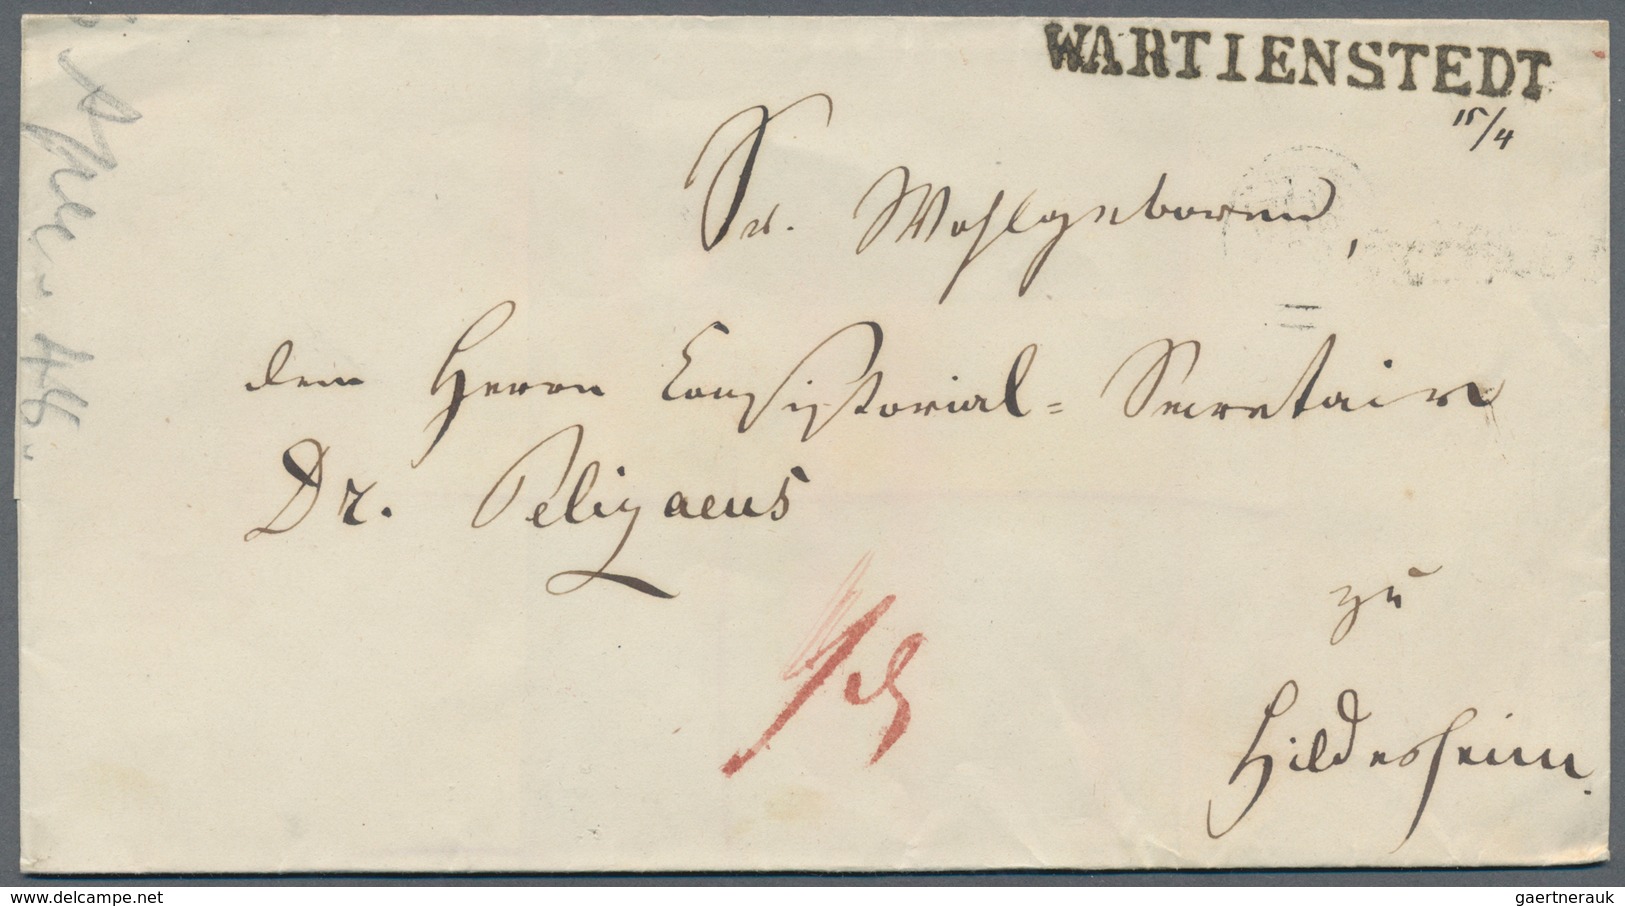 WARTIENSTEDT
15/4
Sr. Wohlgeboren,
dem Herrn Consistorial=Secretair
Dr. Pelizaeus
zu
Hildesheim.
www.delcampe.net
gaertnerauk